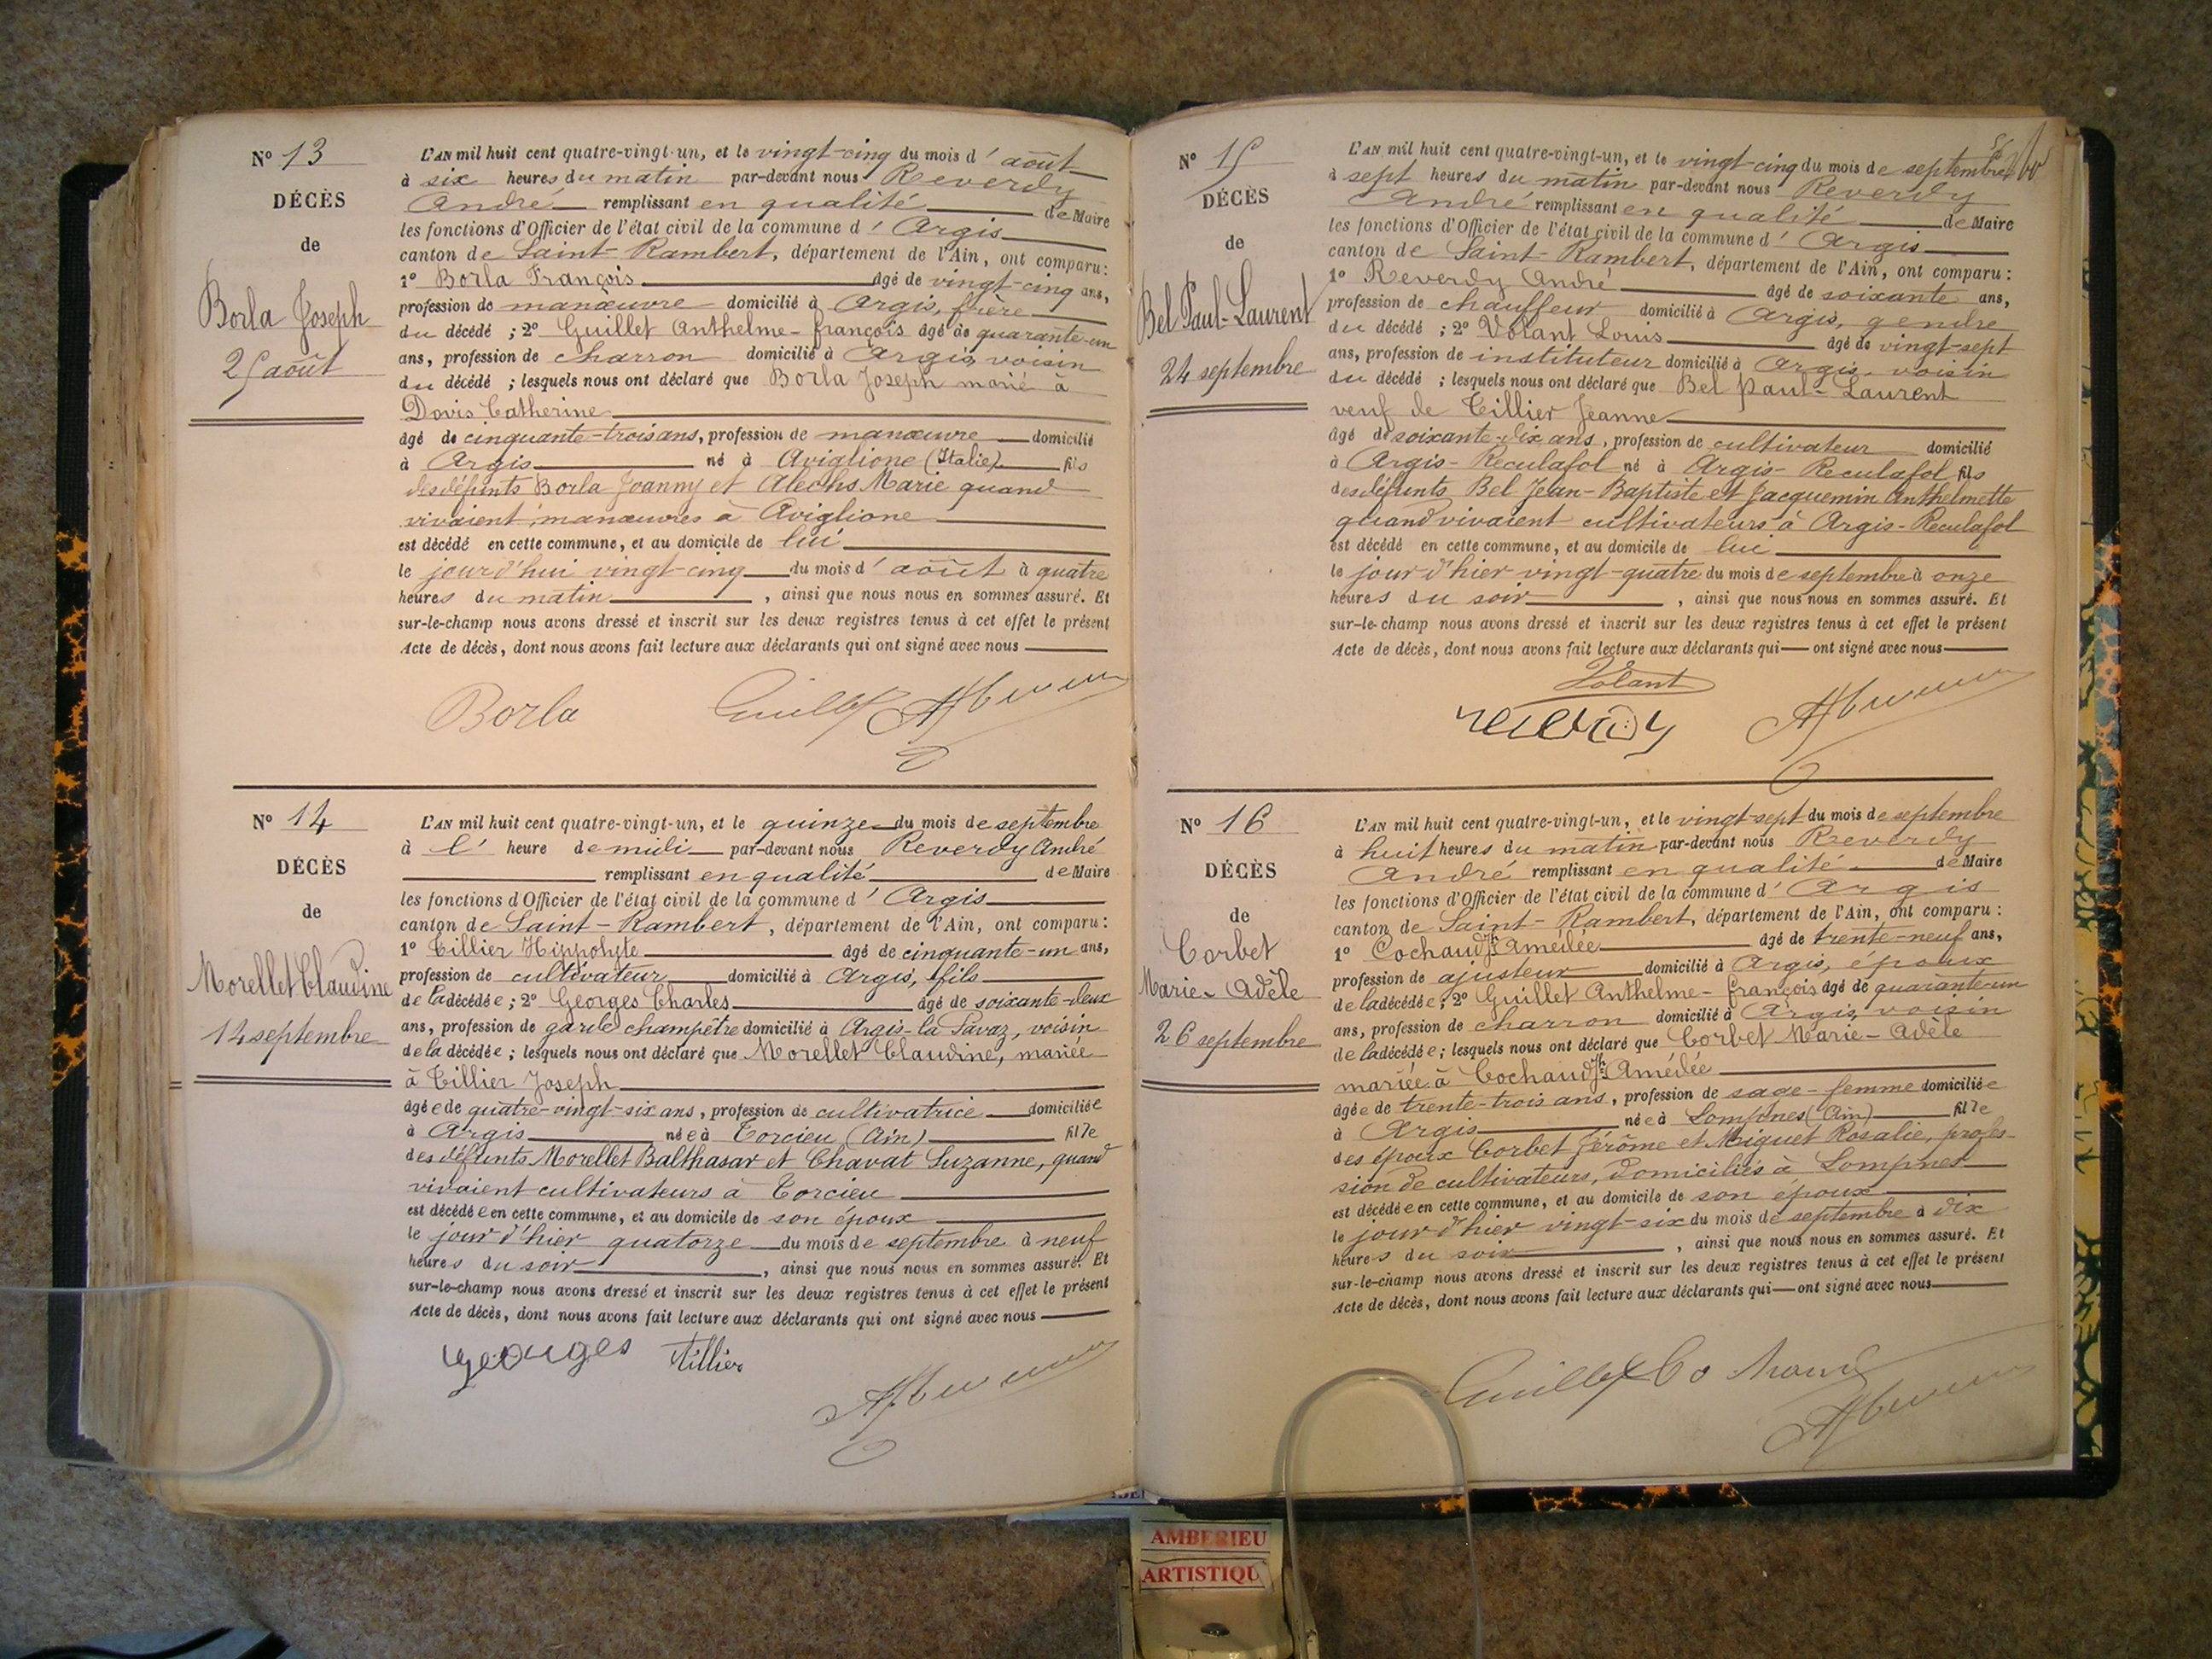 N° 13
DÉCÈS
de
Borla Joseph
25 août
L'AN mil huit cent quatre-vingt-un, et le vingt-cinq du mois d'août
à six heures du matin par-devant nous Reverdy
André remplissant en qualité de Maire
les fonctions d'Officier de l'état civil de la commune d'Argis
canton de Saint-Rambert, département de l'Ain, ont comparu:
1° Borla François âgé de vingt-cinq ans,
profession de manœuvre domicilié à Argis, frère
du décédé ; 2° Guillet Anthelme-françois âgé de quarante-un
ans, profession de charron domicilié à Argis, voisin
du décédé ; lesquels nous ont déclaré que Borla Joseph marié à
Dovis Catherine
âgé de cinquante-trois ans, profession de manœuvre domicilié
à Argis né à Aviglione (Italie) fils
des défunts Borla Joanny et Marie quand
vivaient manœuvres à Aviglione
est décédé en cette commune, et au domicile de lui
le jourd'hui vingt-cinq du mois d'août à quatre
heures du matin, ainsi que nous nous en sommes assuré. Et
sur-le-champ nous avons dressé et inscrit sur les deux registres tenus à cet effet le présent
Acte de décès, dont nous avons fait lecture aux déclarants qui ont signé avec nous
Borla Guillet
N° 14
DÉCÈS
de
Morellet Claudine
14 septembre
L'AN mil huit cent quatre-vingt-un, et le quinze du mois de septembre
à l'heure de midi par-devant nous Reverdy André
remplissant en qualité de Maire
les fonctions d'Officier de l'état civil de la commune d'Argis
canton de Saint-Rambert, département de l'Ain, ont comparu:
1° Tillier Hippolyte âgé de cinquante-un ans,
profession de cultivateur domicilié à Argis, fils
de la décédée ; 2° Georges Charles âgé de soixante-deux
ans, profession de garde champêtre domicilié à Argis-la Savaz, voisin
de la décédée ; lesquels nous ont déclaré que Morellet Claudine, mariée
à Tillier Joseph
âgée de quatre-vingt-six ans, profession de cultivatrice domiciliée
à Argis née à Torcieu (Ain) fille
des défunts Morellet Balthasar et Chavat Suzanne, quand
vivaient cultivateurs à Torcieu
est décédée en cette commune, et au domicile de son époux
le jour d'hier quatorze du mois de septembre à neuf
heures du soir, ainsi que nous nous en sommes assuré. Et
sur-le-champ nous avons dressé et inscrit sur les deux registres tenus à cet effet le présent
Acte de décès, dont nous avons fait lecture aux déclarants qui ont signé avec nous
georges tillier
N° 15
DÉCÈS
de
Bel Paul-Laurent
24 septembre
L'AN mil huit cent quatre-vingt-un, et le vingt-cinq du mois de septembre
à sept heures du matin par-devant nous Reverdy
André remplissant en qualité de Maire
les fonctions d'Officier de l'état civil de la commune d'Argis
canton de Saint-Rambert, département de l'Ain, ont comparu :
1° Reverdy André âgé de soixante ans,
profession de chauffeur domicilié à Argis, gendre
du décédé ; 2° Volant Louis âgé de vingt-sept
ans, profession de instituteur domicilié à Argis, voisin
du décédé ; lesquels nous ont déclaré que Bel Paul-Laurent
veuf de Tillier Jeanne
âgé de soixante-dix ans, profession de cultivateur domicilié
à Argis-Reculafol né à Argis-Reculafol fils
des défunts Bel Jean-Baptiste et Jacquemin Anthelmette
quand vivaient cultivateurs à Argis-Reculafol
est décédé en cette commune, et au domicile de lui
le jour d'hier vingt-quatre du mois de septembre à onze
heures du soir, ainsi que nous nous en sommes assuré. Et
sur-le-champ nous avons dressé et inscrit sur les deux registres tenus à cet effet le présent
Acte de décès, dont nous avons fait lecture aux déclarants qui ont signé avec nous
Volant
reverdy
N° 16
DÉCÈS
de
Corbet
Marie-Adèle
26 septembre
L'AN mil huit cent quatre-vingt-un, et le vingt-sept du mois de septembre
à huit heures du matin par-devant nous Reverdy
André remplissant en qualité de Maire
les fonctions d'Officier de l'état civil de la commune d'Argis
canton de Saint-Rambert, département de l'Ain, ont comparu :
1° Cochaud Jh Amédée âgé de trente-neuf ans,
profession de ajusteur domicilié à Argis, époux
de la décédée ; 2° Guillet Anthelme-françois âgé de quarante-un
ans, profession de charron domicilié à Argis, voisin
de la décédée ; lesquels nous ont déclaré que Corbet Marie-Adèle
mariée à Cochaud Jh Amédée
âgée de trente-trois ans, profession de sage-femme domiciliée
à Argis née à Lompnes (Ain) fille
des époux Corbet Jérôme et Miguet Rosalie, profes-
sion de cultivateurs, domiciliés à Lompnes
est décédée en cette commune, et au domicile de son époux
le jour d'hier vingt-six du mois de septembre à dix
heures du soir, ainsi que nous nous en sommes assuré. Et
sur-le-champ nous avons dressé et inscrit sur les deux registres tenus à cet effet le présent
Acte de décès, dont nous avons fait lecture aux déclarants qui ont signé avec nous
Guillet Cochaud
AMBERIEU
ARTISTIQU